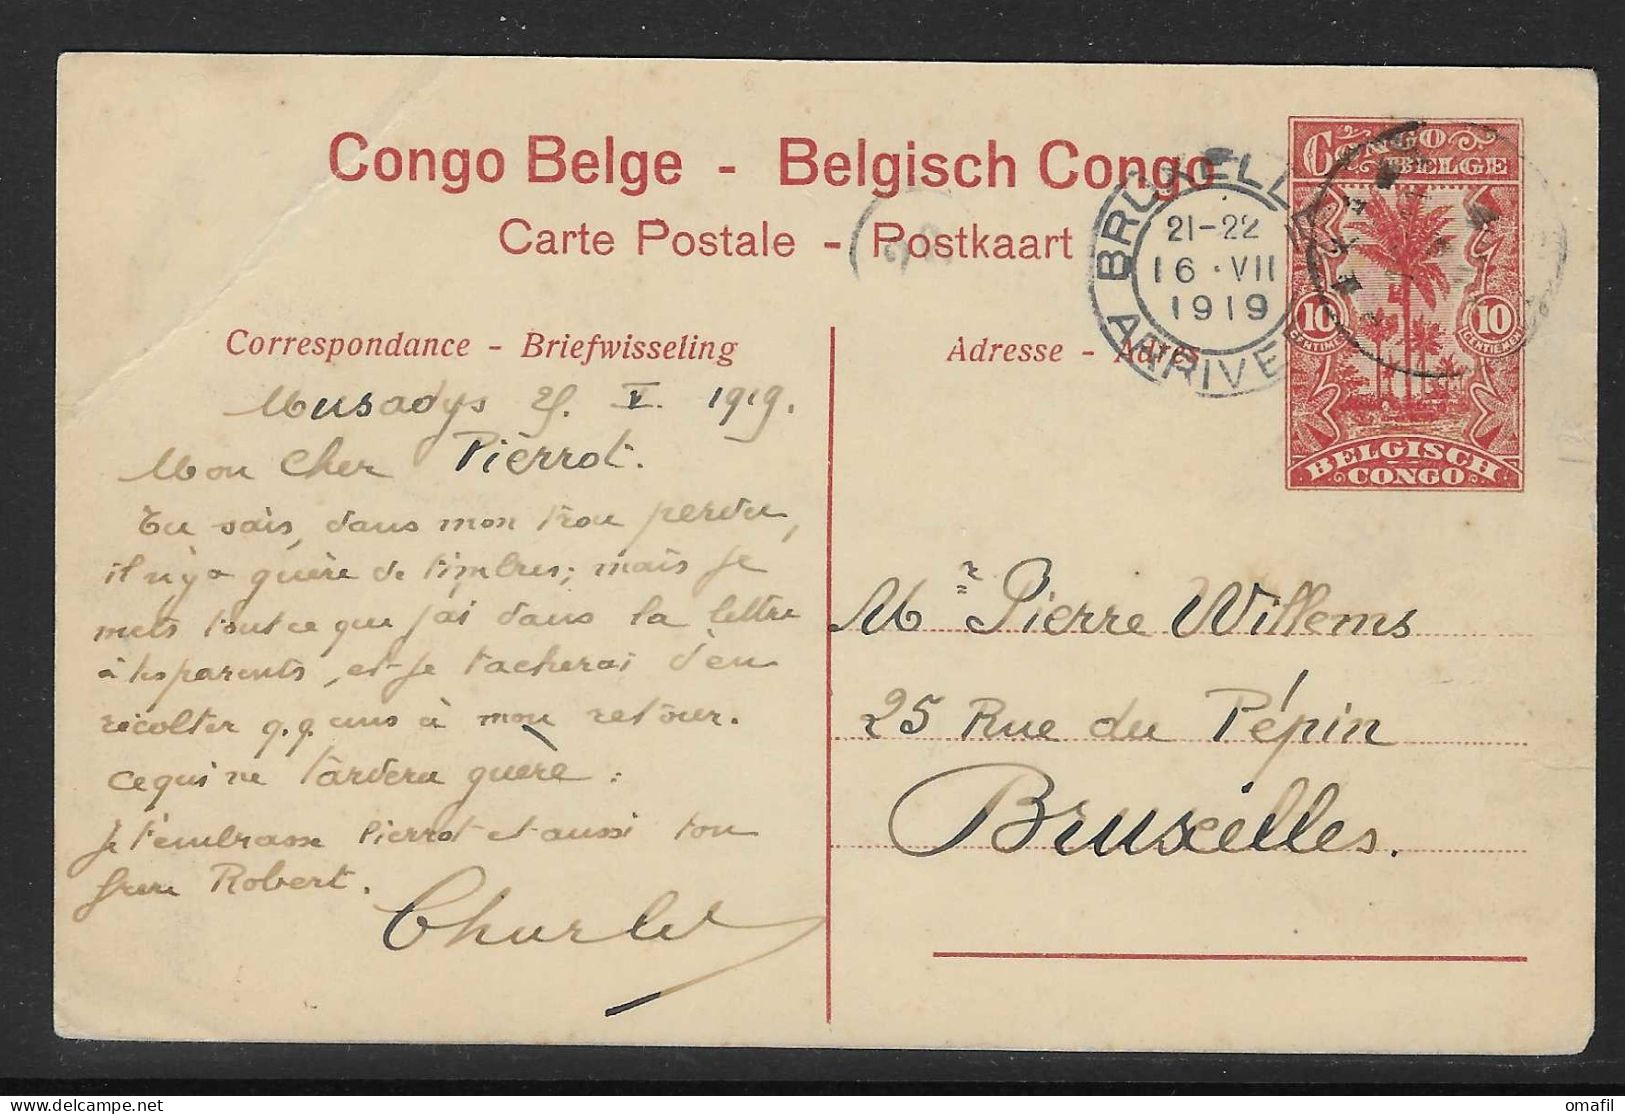 Congo Belge - Belgisch Congo
Carte Postale - Postkaart
CONGO
BELGE
10 CENTIMES
10 CENTIEMEN
BELGISCH
CONGO
BRUXELLES
21-22
16 · VII
1919
ARRIVEE
Correspondance - Briefwisseling
Adresse - Adres
Musadys V. 1919.
Mon cher Pierrot.
Tu sais, dans mon trou perdu,
il n'y a guère de timbres; mais je
mets tout ce que j'ai dans la lettre
à tes parents, et je tacherai d'en
récolter q.q. uns à mon retour.
ce qui ne tardera guere.
Je t'embrasse Pierrot et aussi ton
frere Robert.
Charles
Mr Pierre Willems
25 Rue du Pépin
Bruxelles.
delcampe.net
omafil